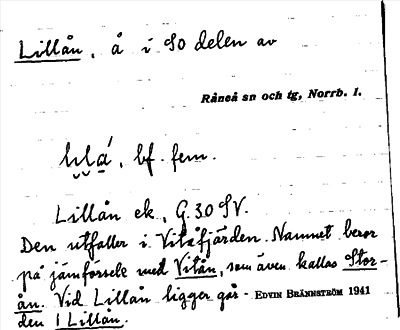 Lillån, å i SO delen av
Råneå sn och tg, Norrb. l.
bf. fem.
Lillån ek, G. 30 SV.
Den utfaller i Vitåfjärden. Namnet beror
på jämförsele med Vitån, som även kallas Stor-
ån. Vid Lillån ligger går- EDVIN BRÄNNSTRÖM 1941
den 1 Lillån.